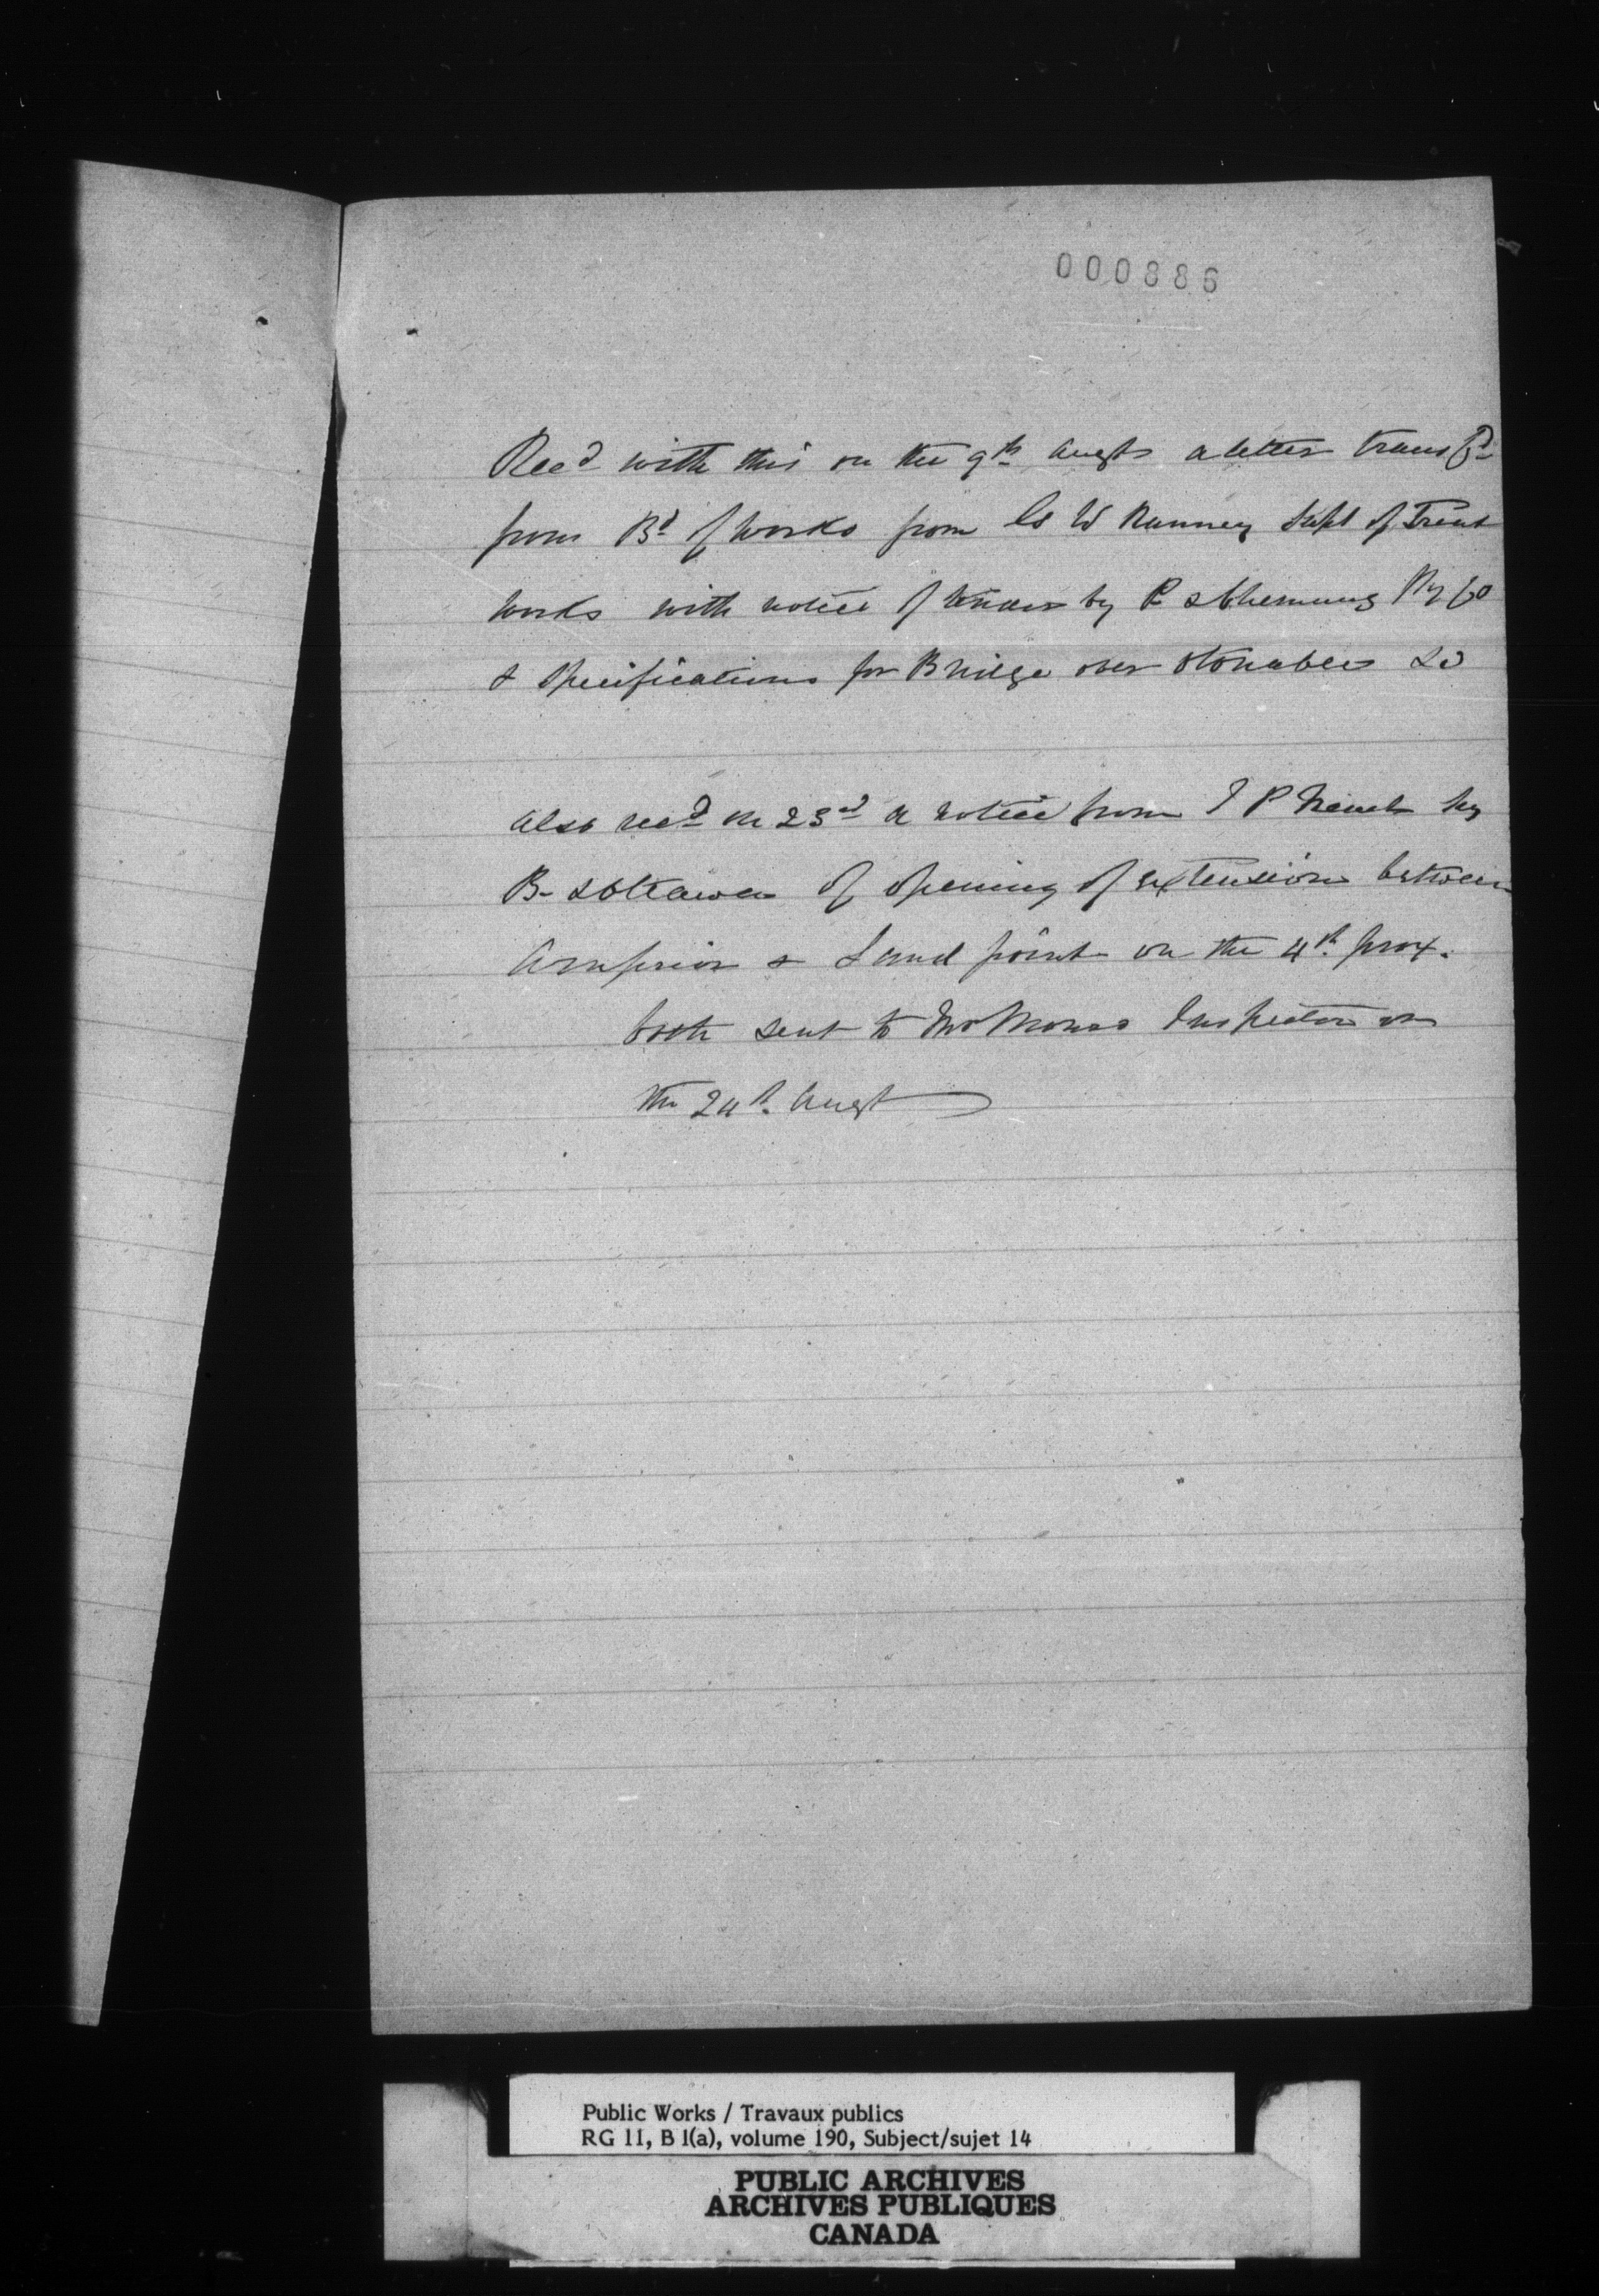 000886
Recd with this on the 9th Augt a letter transfd
from Bd of Works from Cs W Ranney Supt of Trent
Works with notice of tender by P & Chemung Ry Co
& Specifications for Bridge over Otonabee &c
Also recd on 23rd a notice from J P French
B & Ottawa of opening of extension between
Arnprior & Sand point on the 4th prox.
both sent to Mr Inspector on
the 24th Augt
Public Works / Travaux publics
RG 11, B 1(a), volume 190, Subject/sujet 14
PUBLIC ARCHIVES
ARCHIVES PUBLIQUES
CANADA